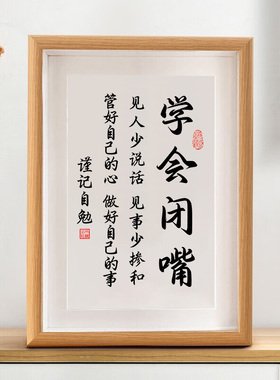 学会闭嘴
见人少说话 见事少掺和
管好自己的心 做好自己的事
谨记自勉